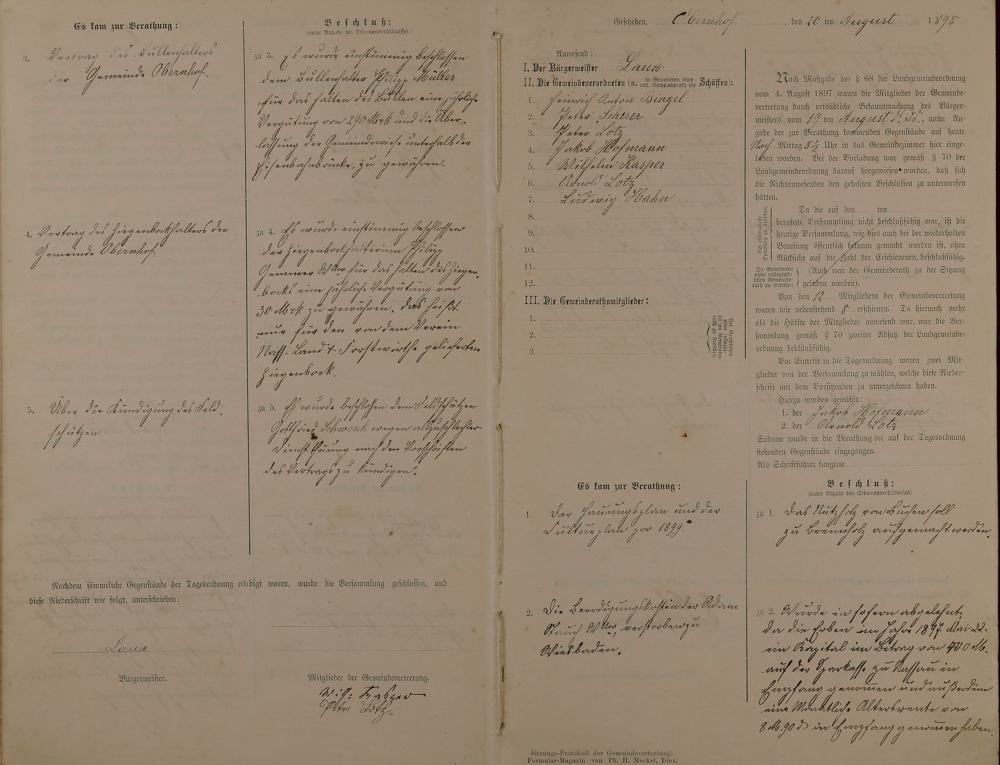 Es kam zur Berathung:
3. Vertrag des Bullenhalters
der Gemeinde Obernhof.
4. Vertrag des Ziegenbockhalters der
Gemeinde Obernhof.
5. Über die Kündigung des Feld-
schützen
Beschluß:
(unter Angabe des Stimmenverhältnisses)
zu 3. Es wurde einstimmig beschlossen
dem Bullenhalter Philipp Müller
für das Halten des Bullen eine jährliche
Vergütung von 290 Mark und die Über-
lassung der Gemeindewiese unterhalb der
Eisenbahnbrücke zu gewähren.
zu 4. Es wurde einstimmig beschlossen
der Ziegenbockhalterin Philipp
Gemmer Wwe für das Halten des Ziegen-
bocks eine jährliche Vergütung von
30 Mark zu gewähren, das heißt
nur für den von dem Verein
Nass. Land & Forstwirthe gelieferten
Ziegenbock.
zu 5. Es wurde beschlossen dem Feldschützen
Gottfried wegen allzuschlechter
Dienstführung nach den Vorschriften
des Vertrags zu kündigen.
Nachdem sämmtliche Gegenstände der Tagesordnung erledigt waren, wurde die Versammlung geschlossen, und
diese Niederschrift wie folgt, unterschrieben:
Laux
Bürgermeister.
Mitglieder der Gemeindevertretung.
Wilh: Kasper
Peter Lotz.
Geschehen, Obernhof, den 20 ten August 1898
Anwesend:
I. Der Bürgermeister Laux
II. Die Gemeindeverordneten (u. in Gemeinden ohne coll. Gemeinderath die Schöffen):
1. Heinrich Anton Bingel
2. Peter
3. Peter Lotz
4. Jakob Hofmann
5. Wilhelm Kasper
6. Arnold Lotz
7. Ludwig Hahn
8.
9.
10.
11.
12.
III. Die Gemeinderathsmitglieder:
1.
2.
3.
Nach Maßgabe des § 68 der Landgemeindeordnung
vom 4. August 1897 waren die Mitglieder der Gemeinde-
vertretung durch ortsübliche Bekanntmachung des Bürger-
meisters vom 19 ten August d. Js. unter An-
gabe der zur Berathung kommenden Gegenstände auf heute
Nach Mittag 8½ Uhr in das Gemeindezimmer hier einge-
laden worden. Bei der Vorladung war gemäß § 70 der
Landgemeindeordnung darauf hingewiesen worden, daß sich
die Nichtanwesenden den gefaßten Beschlüssen zu unterwerfen
hätten.
Da die auf den ten
berufene Versammlung nicht beschlußfähig war, ist die
heutige Versammlung, wie dies auch bei der wiederholten
Berufung öffentlich bekannt gemacht worden ist, ohne
Rücksicht auf die Zahl der Erschienenen, beschlußfähig.
(Auch war der Gemeinderath zu der Sitzung
geladen worden).
Von den 12 Mitgliedern der Gemeindevertretung
waren wie nebenstehend 8 erschienen. Da hiernach mehr
als die Hälfte der Mitglieder anwesend war, war die Ver-
sammlung gemäß § 70 zweiter Absatz der Landgemeinde-
ordnung beschlußfähig.
Vor Eintritt in die Tagesordnung waren zwei Mit-
glieder von der Versammlung zu wählen, welche diese Nieder-
schrift mit dem Vorsitzenden zu unterzeichnen haben.
Hierzu wurden gewählt:
1. der Jakob Hofmann
2. der Arnold Lotz
Sodann wurde in die Berathung der auf der Tagesordnung
stehenden Gegenstände eingegangen.
Als Schriftführer fungirte
Es kam zur Berathung:
1. Der Hauungsplan und der
Culturplan pro 1899
2. Die Beerdigungskosten der Adam
Wwe, verstorben zu
Wiesbaden.
Beschluß:
(unter Angabe des Stimmenverhältnisses)
zu 1. Das Nutzholz von Buchen soll
zu Brennholz aufgemacht werden.
zu 2. Wurde in sofern abgelehnt,
da die Erben im Jahre 1897 Mai 22.
ein Kapital im Betrag von 400 M.
auf der Sparkasse zu Nassau in
Empfang genommen und außerdem
eine Monatliche Altersrente von
8 M. 90 d in Empfang genommen haben.
Sitzungs-Protokoll der Gemeindevertretung:
Formular-Magazin von Ph. H. Meckel, Diez.